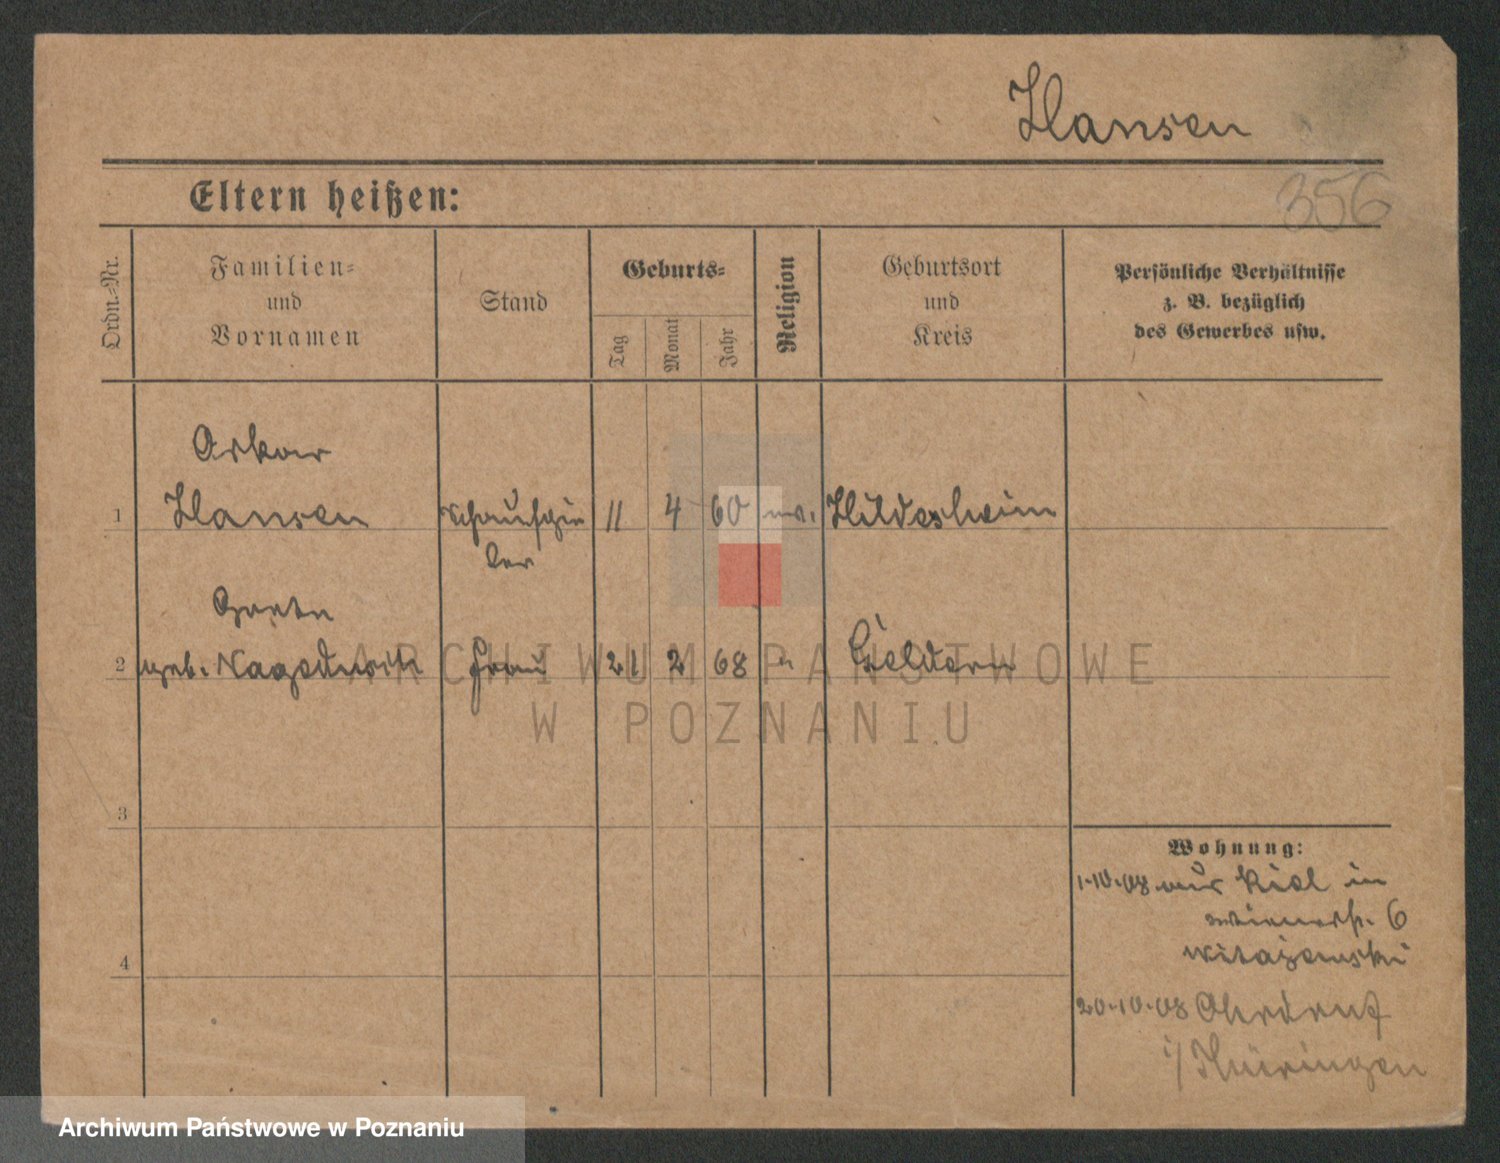 Hansen
356
Eltern heißen:
Ordn.-Nr.
Familien-
und
Vornamen
Stand
Geburts-
Tag
Monat
Jahr
Religion
Geburtsort
und
Kreis
Persönliche Verhältnisse
z. B. bezüglich
des Gewerbes usw.
Oskar
1 Hansen Schauspie 11 4 60 ev. Hildesheim
ler
Greta
2 geb. Frau 21 2 68 " Geldern
3
Wohnung:
1.10.08 aus Kiel in
Wienerstr. 6
Witajewski
4
20.10.08 Ohrdruf
i/Thüringen
ARCHIWUM PAŃSTWOWE
W POZNANIU
Archiwum Państwowe w Poznaniu